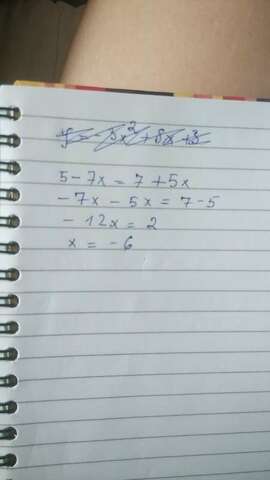 y = -5x² + 8x + 3
5 - 7x = 7 + 5x
-7x - 5x = 7 - 5
-12x = 2
x = -6